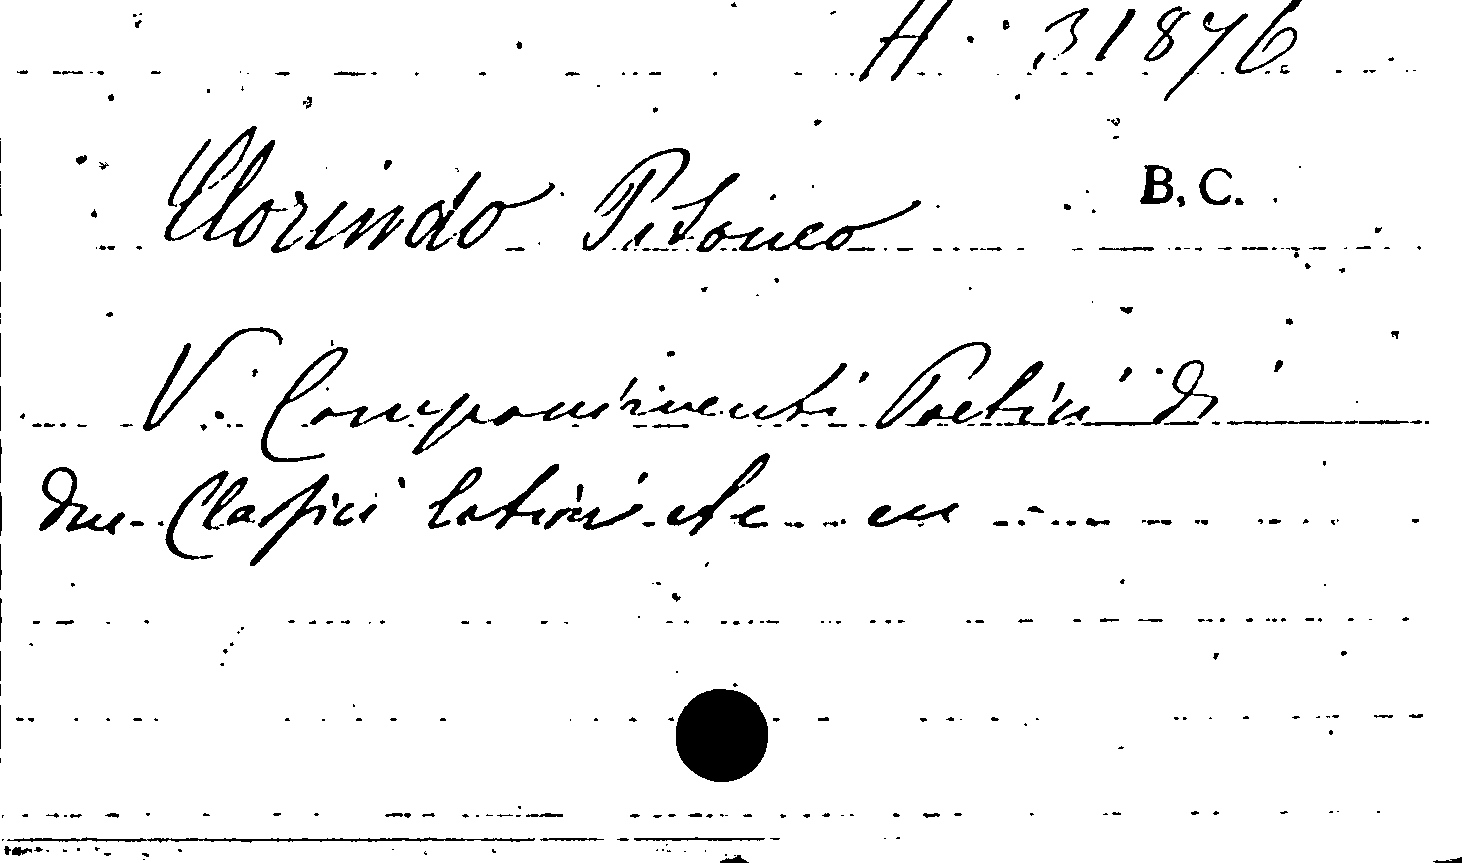 A. 31876
B. C.
Clorindo Pitoneo
V. Componimenti Poetici di
due Classici latini etc